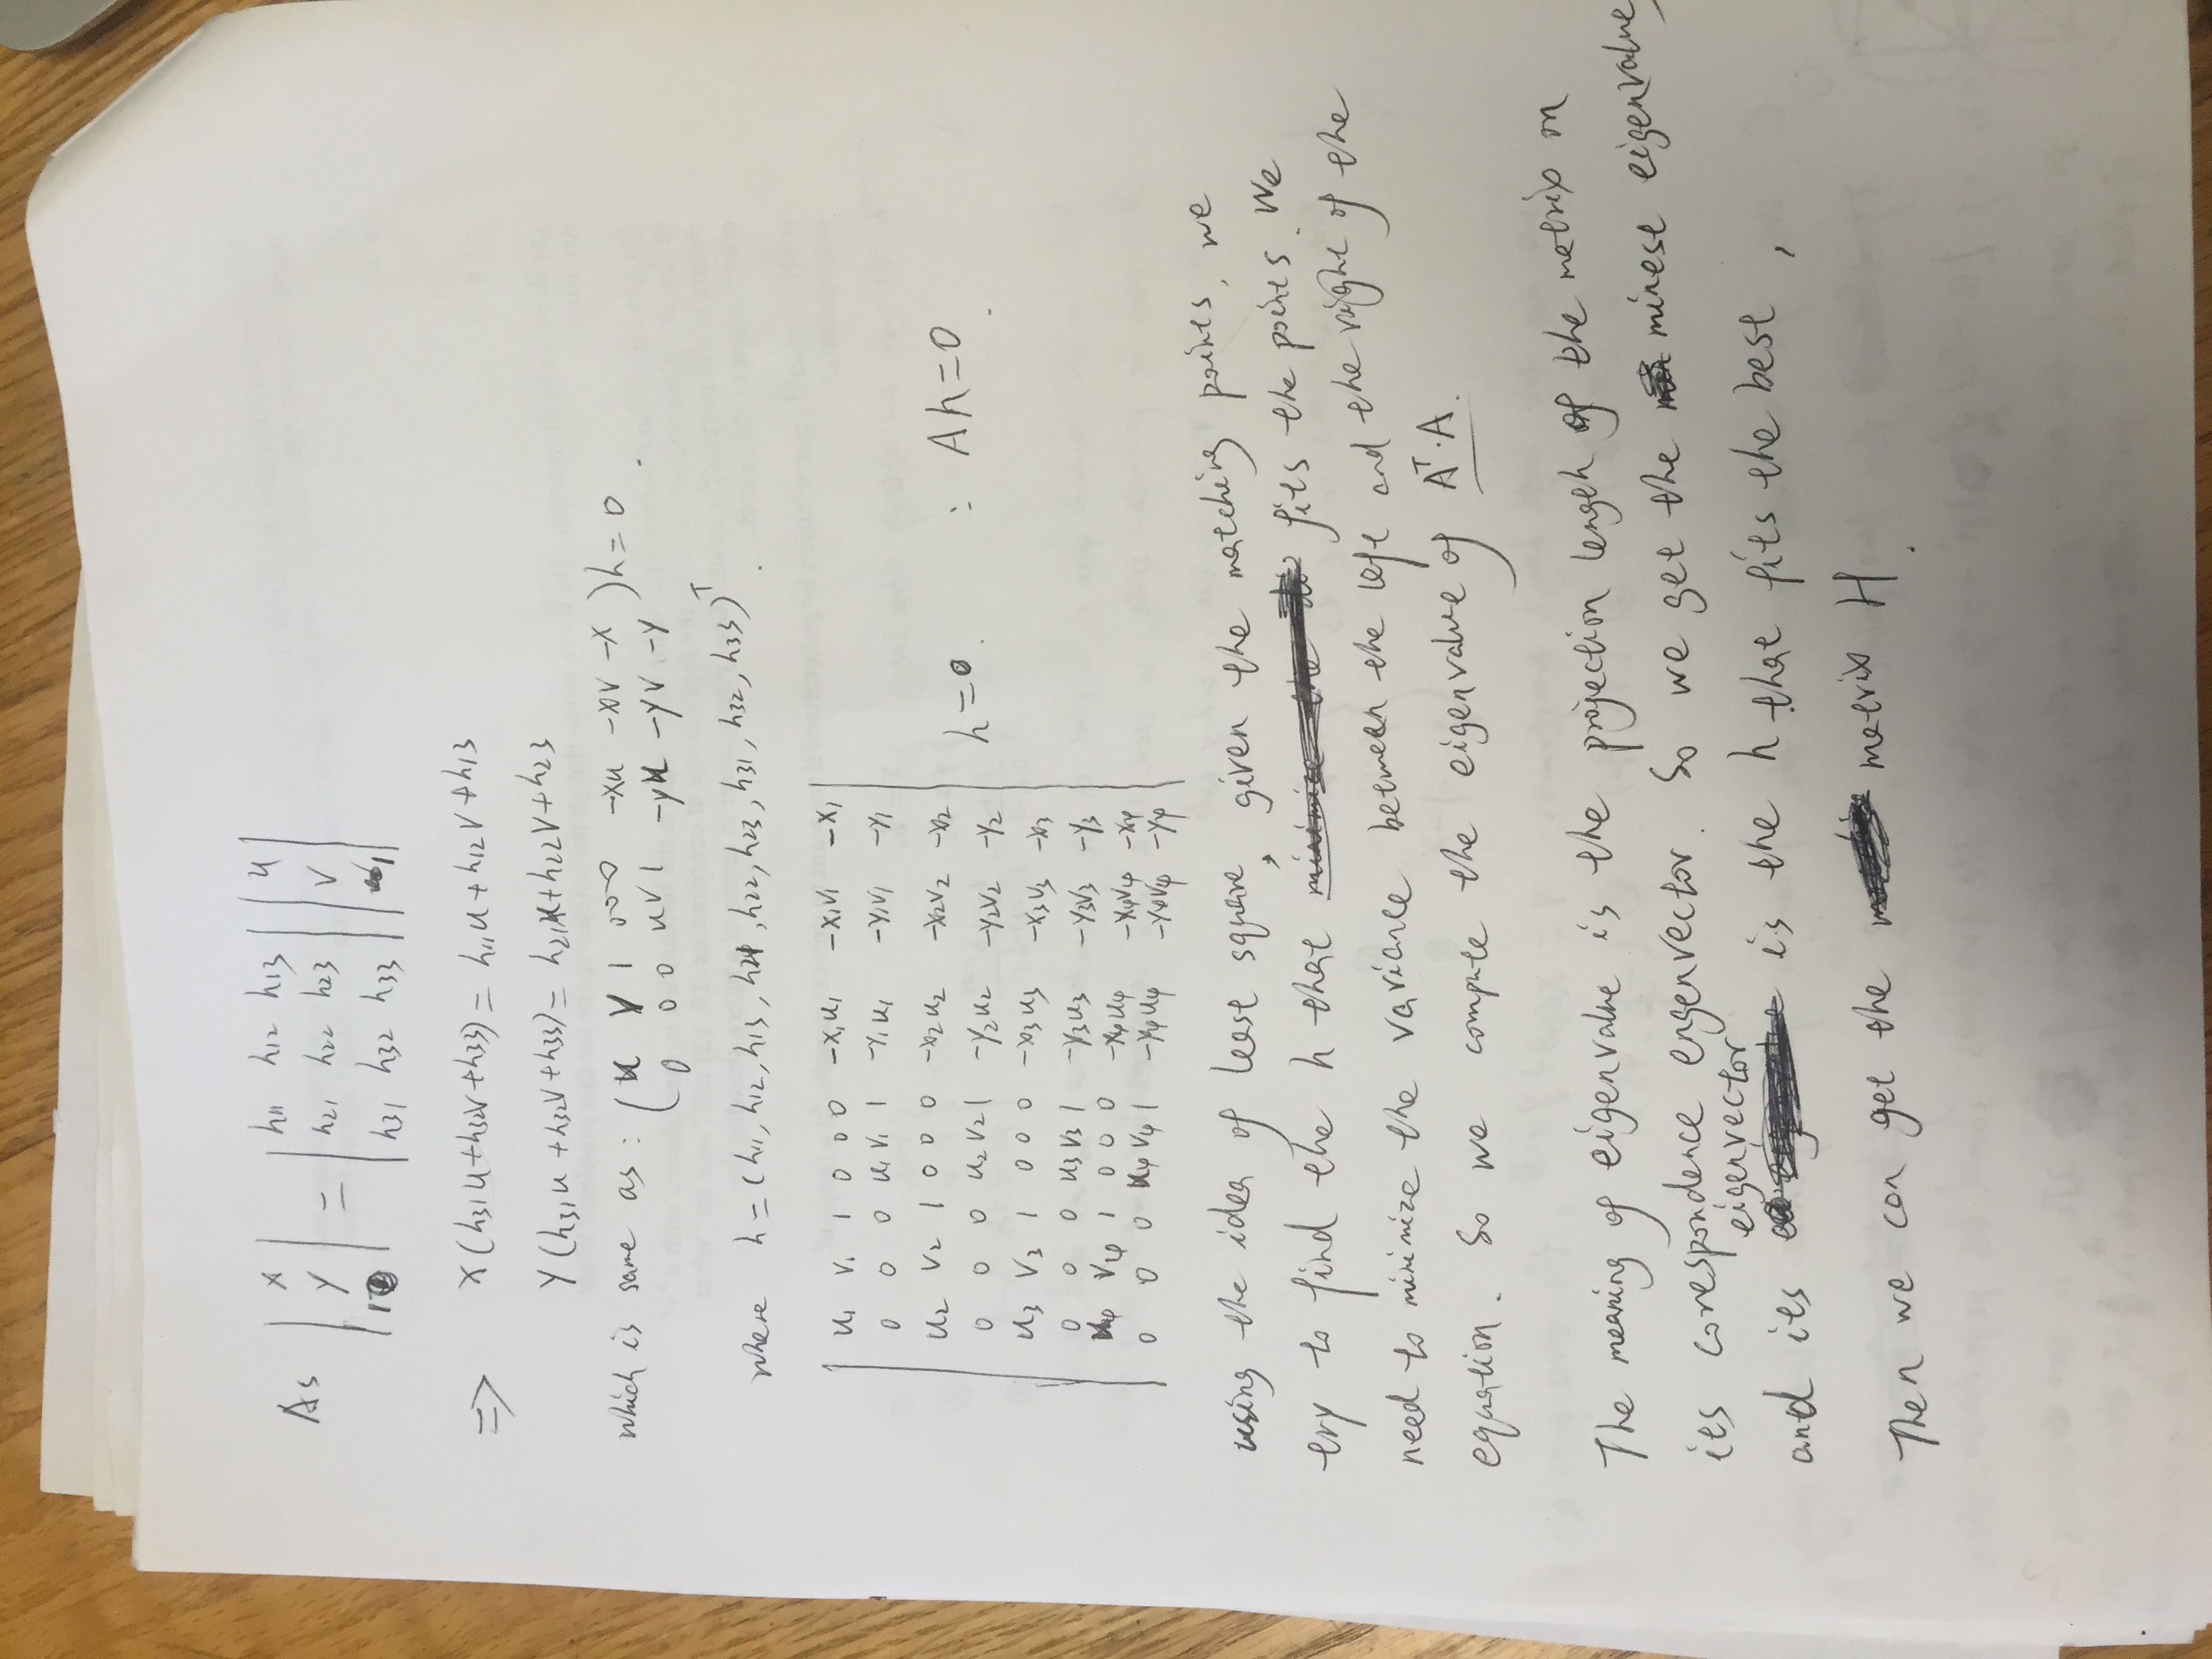 As | x y 1 | = | h11 h12 h13 h21 h22 h23 h31 h32 h33 | | u v 1 |
=> x(h31u+h32v+h33) = h11u+h12v+h13
y(h31u+h32v+h33) = h21u+h22v+h23
which is same as : ( u v 1 0 0 0 -xu -xv -x
0 0 0 u v 1 -yu -yv -y ) h = 0 .
where h = (h11, h12, h13, h21, h22, h23, h31, h32, h33)^T .
u1 v1 1 0 0 0 -x1u1 -x1v1 -x1
0 0 0 u1 v1 1 -y1u1 -y1v1 -y1
u2 v2 1 0 0 0 -x2u2 -x2v2 -x2
0 0 0 u2 v2 1 -y2u2 -y2v2 -y2 h=0. : Ah=0.
u3 v3 1 0 0 0 -x3u3 -x3v3 -x3
0 0 0 u3 v3 1 -y3u3 -y3v3 -y3
u4 v4 1 0 0 0 -x4u4 -x4v4 -x4
0 0 0 u4 v4 1 -y4u4 -y4v4 -y4
using the idea of least square, given the matching points, we
try to find the h that fits the points. We
need to minimize the variance between the left and the right of the
equation. So we compute the eigenvalue of A^T·A.
The meaning of eigenvalue is the projection length of the matrix on
its correspondence engenvector. So we get the minest eigenvalue,
and its eigenvector is the h that fits the best,
Then we can get the matrix H.